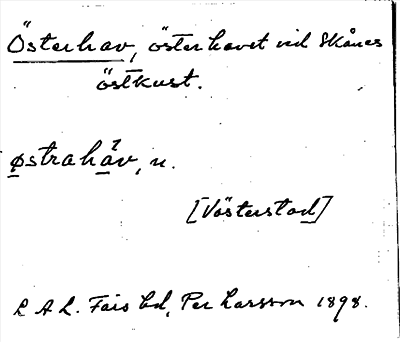 Österhav, österhavet vid Skånes
östkust.
østrahav, n.
[Vösterstad]
L A L. Fårs hd, Per Larsson 1898.